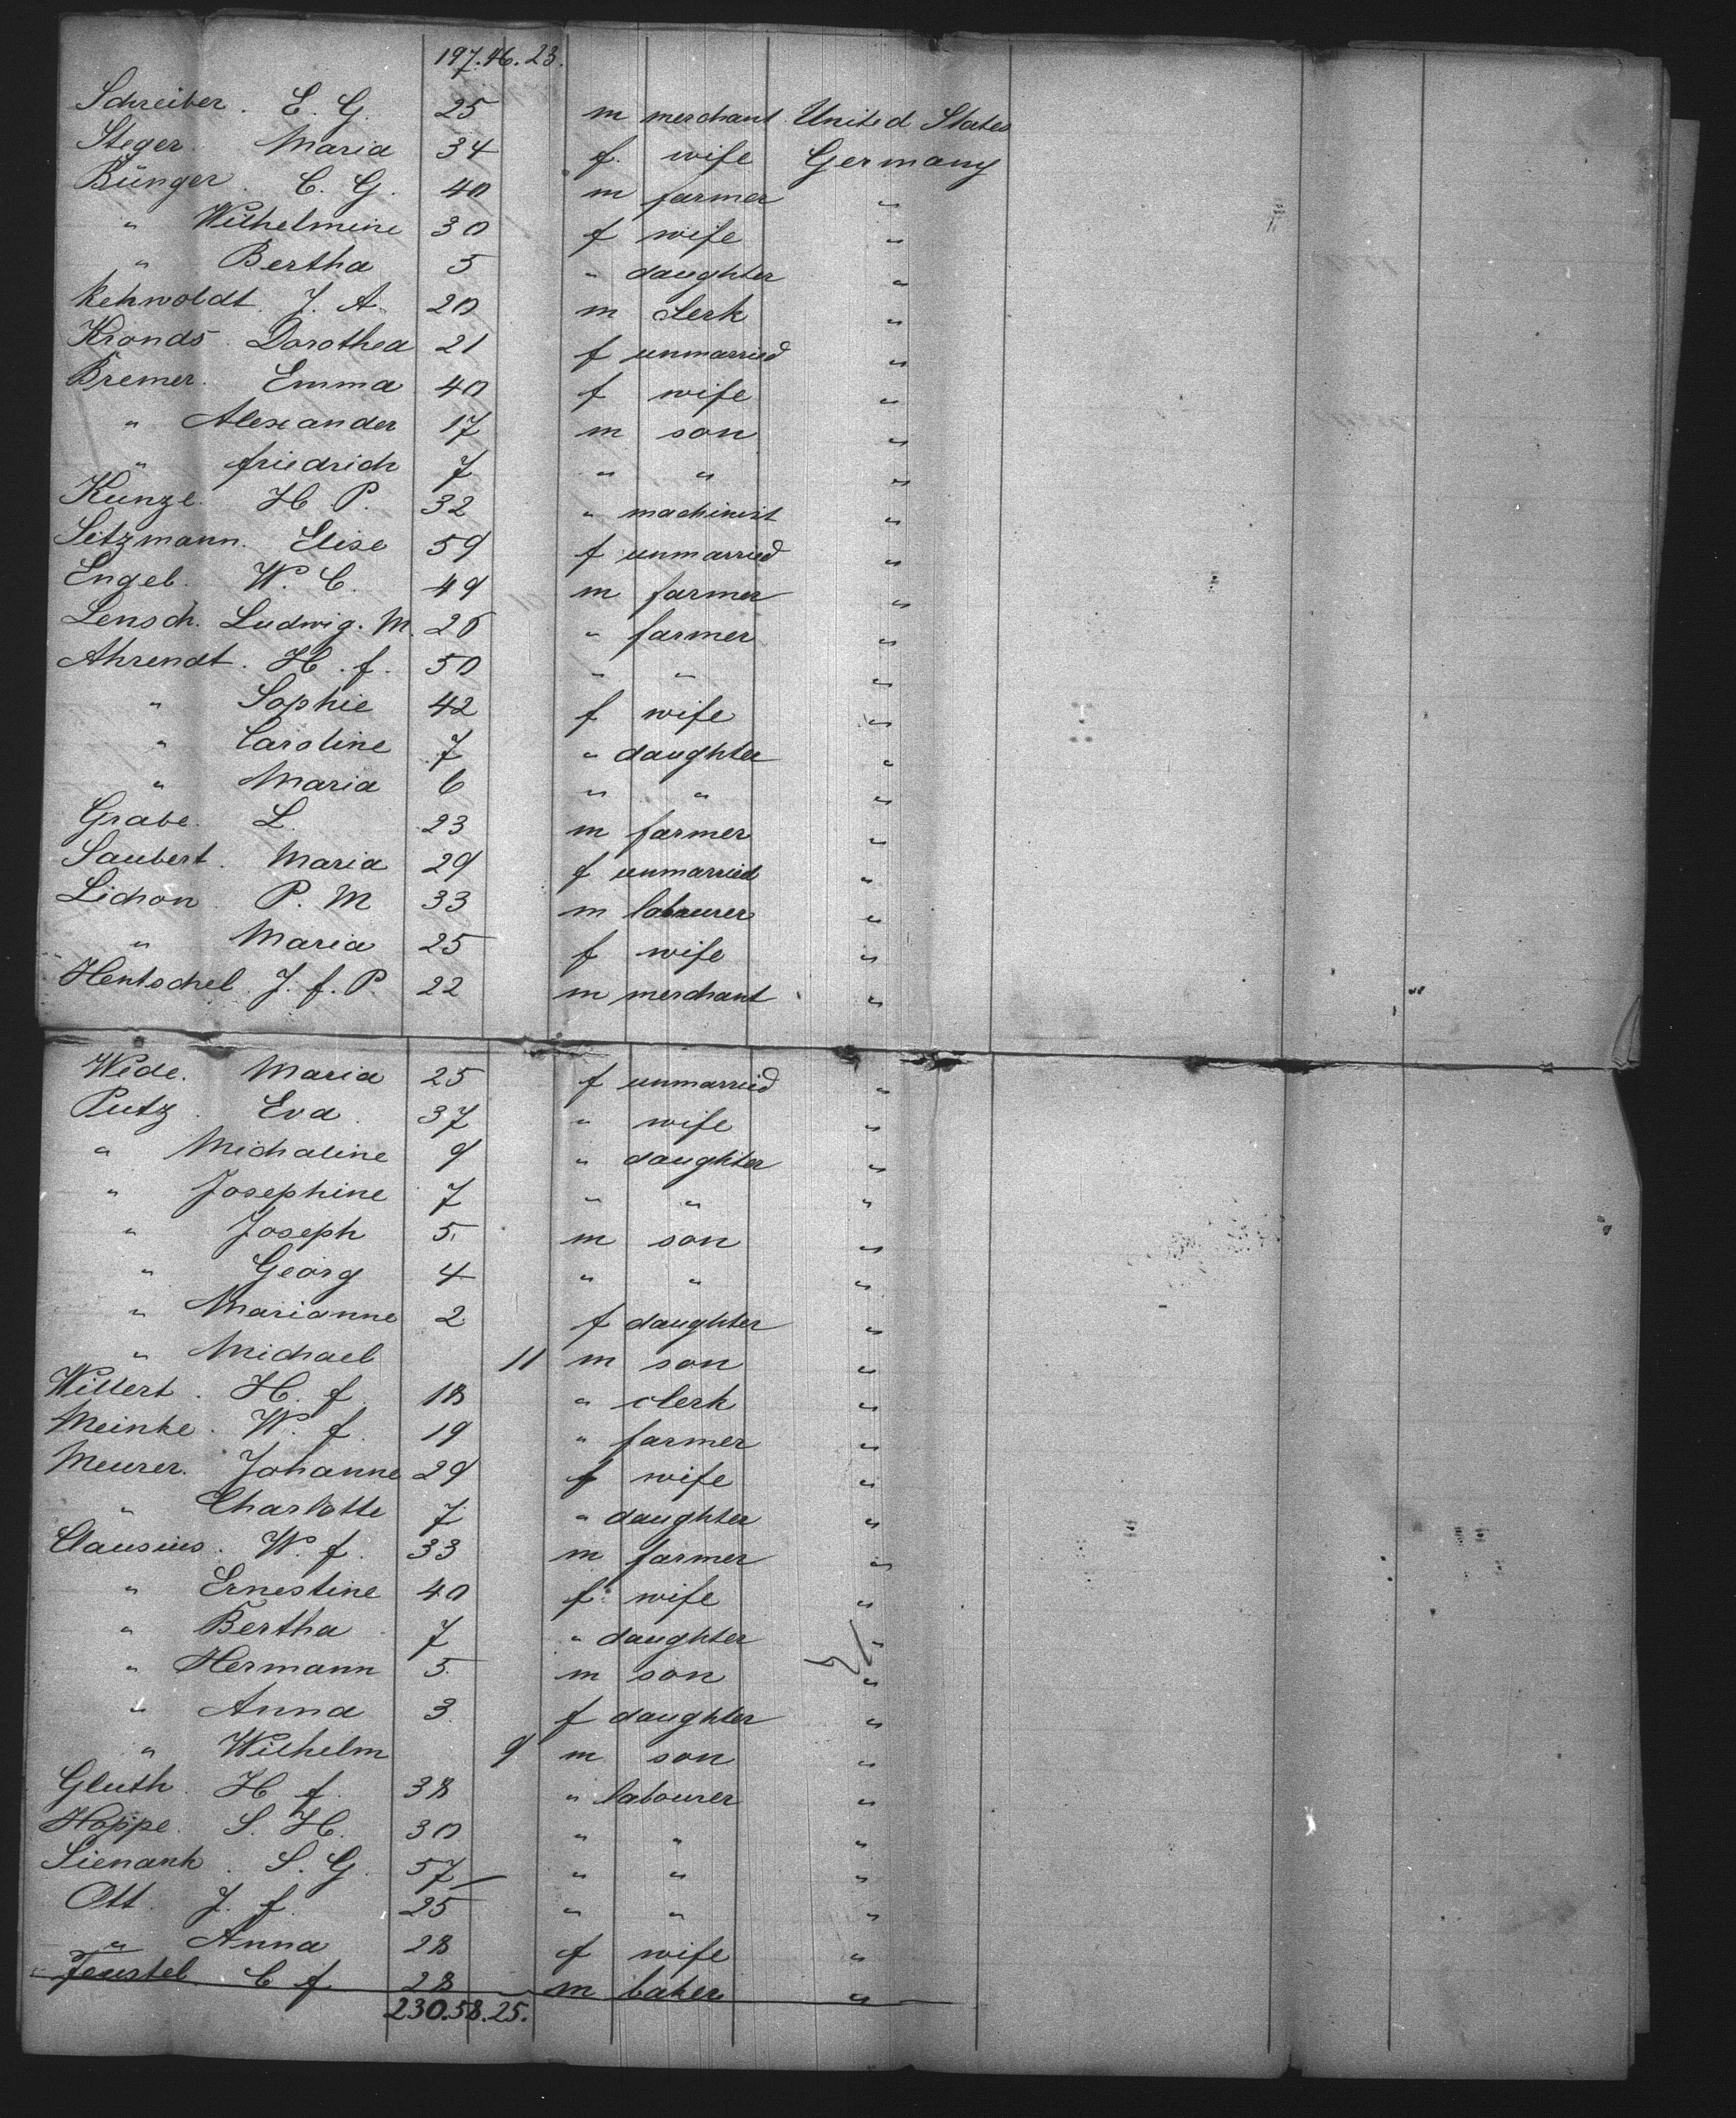 197.46.23.
Schreiber. E. G. 25 m merchant United States
Steger. Maria 34 f. wife Germany
Bünger. C. G. 40 m farmer "
" Wilhelmine 30 f wife "
" Bertha 5 " daughter "
Rehwoldt. J. A. 20 m clerk "
Kronds Dorothea 21 f unmarried "
Bremer. Emma 40 f wife "
" Alexander 17 m son "
" Friedrich 7 " " "
Kunze. H. P. 32 " machinist "
Sitzmann. Elise 59 f unmarried "
Engel. W. C. 49 m farmer "
Lensch. Ludwig. M. 26 " farmer "
Ahrendt. H. f. 50 " " "
" Sophie 42 f wife "
" Caroline 7 " daughter "
" Maria 6 " " "
Grabe. L. 23 m farmer "
Saubert. Maria 29 f unmarried "
Lichon P. M 33 m labourer "
" Maria 25 f wife "
Hentschel J. f. P. 22 m merchant "
Wede. Maria 25 f unmarried "
Putz. Eva 37 " wife "
" Michaline 9 " daughter "
" Josephine 7 " " "
" Joseph 5. m son "
" Georg 4 " " "
" Marianne 2 f daughter "
" Michael 11 m son "
Willert. H. f. 18 " clerk "
Meinke. W. f. 19 " farmer "
Meurer. Johanne 29 f wife "
" Charlotte 7 " daughter "
Clausius. W. f. 33 m farmer "
" Ernestine 40 f wife "
" Bertha 7 " daughter "
" Hermann 5. m son "
" Anna 3 f daughter "
" Wilhelm 9 m son "
Gluth. H f. 38 " labourer "
Hoppe. S. H. 30 " " "
Sienank. S. G. 57 " " "
Ott. J. f. 25 " " "
" Anna 28 f wife "
Feustel C f 28 m baker "
230.58.25.